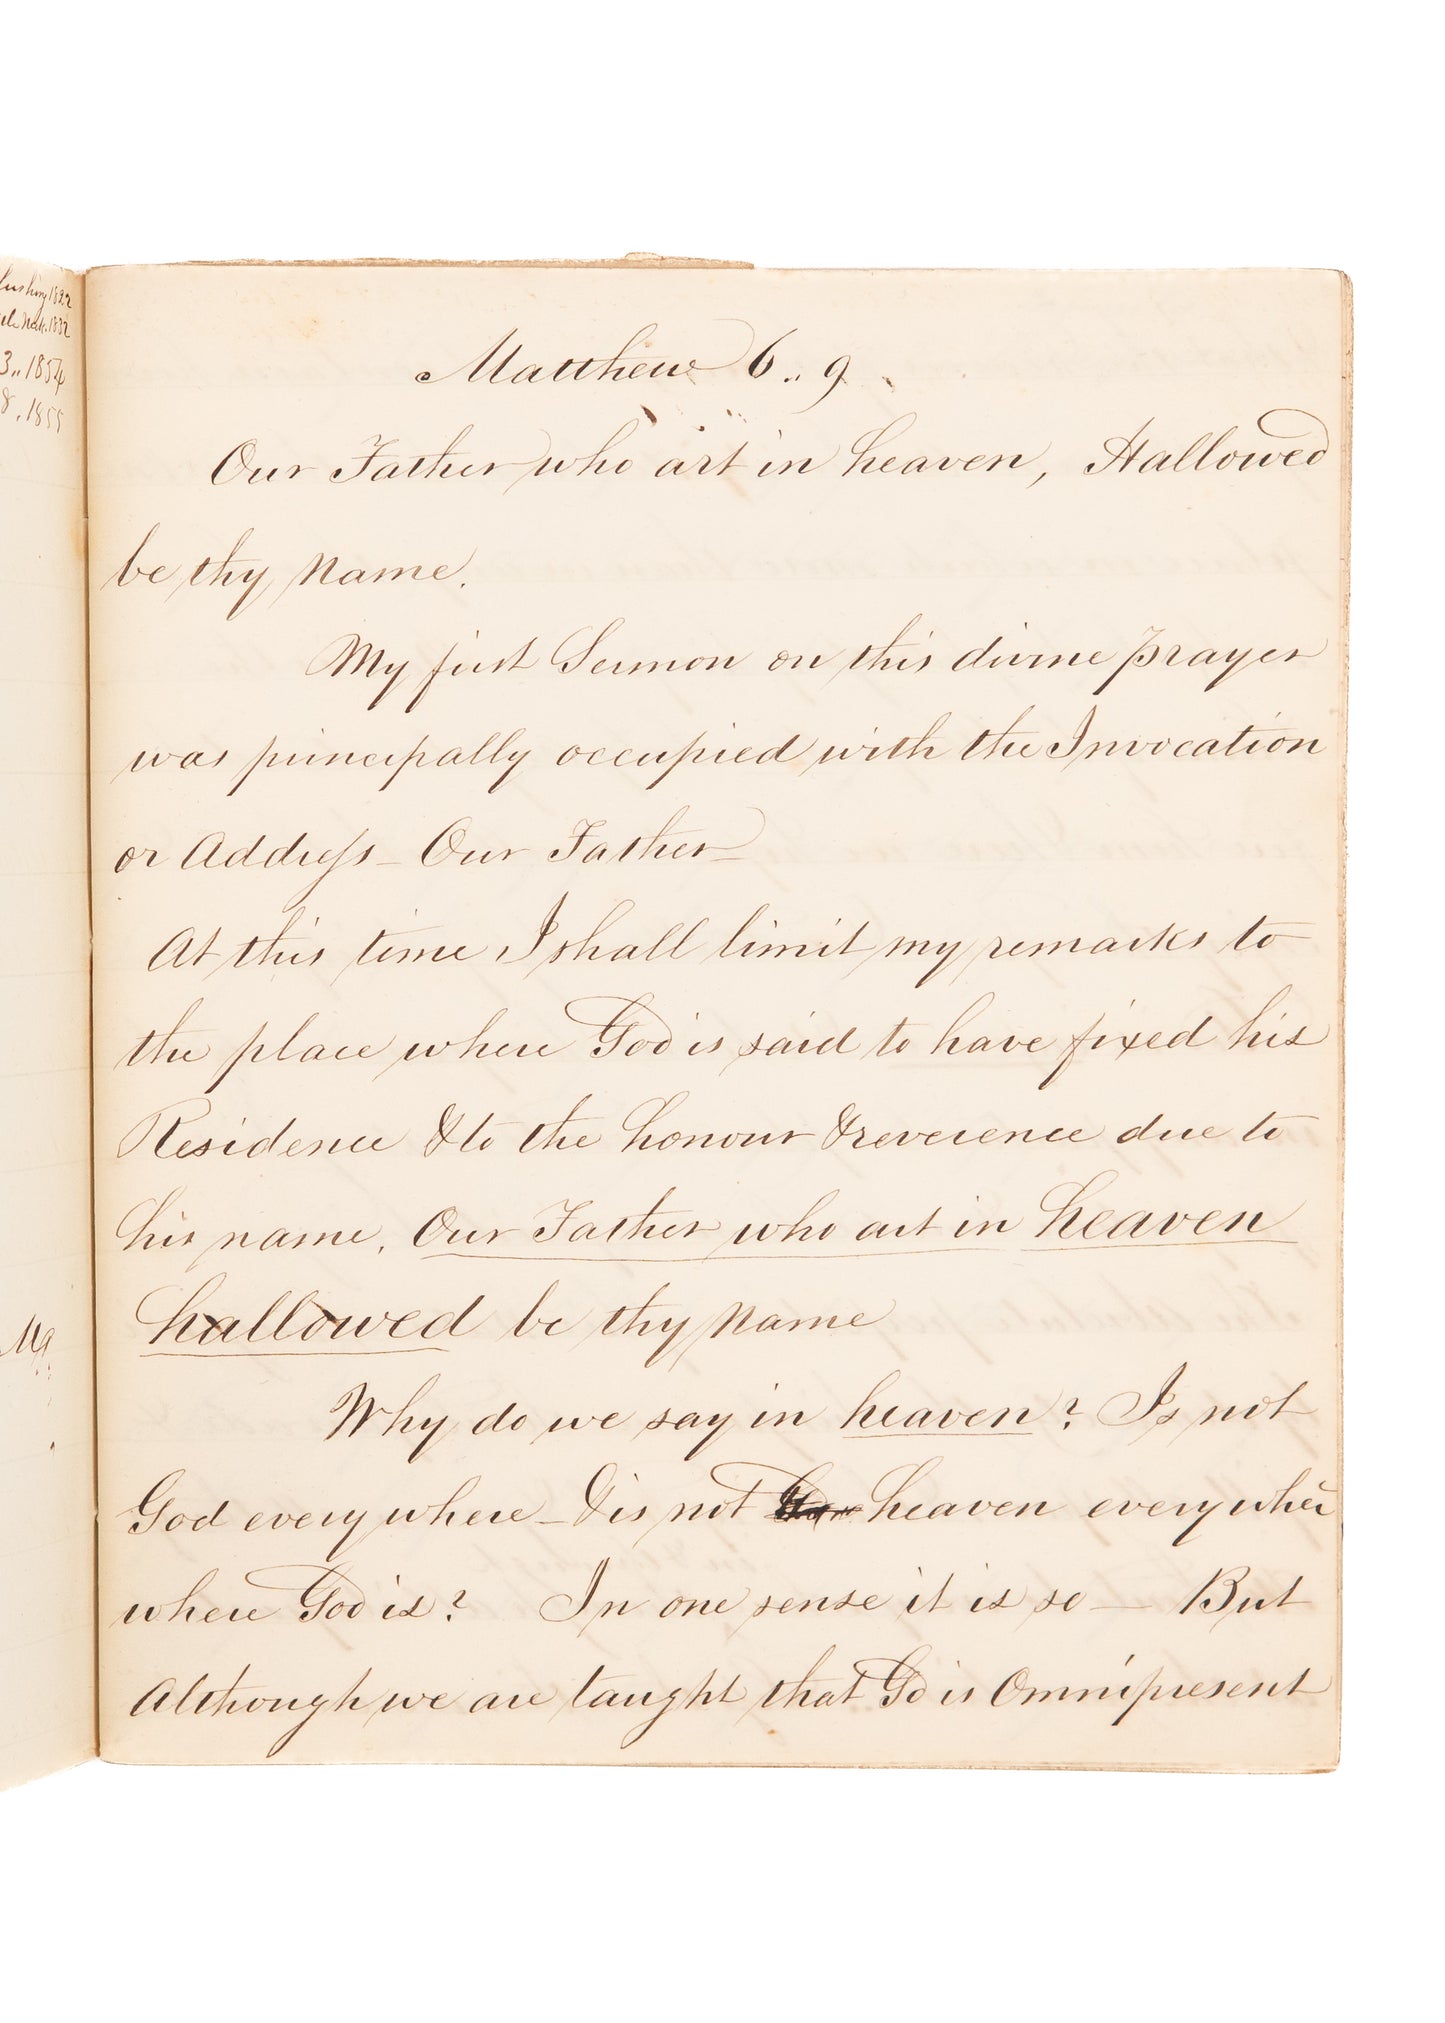 1832
Neck. 1832
3,, 1854
8, 1855
Matthew 6..9
Our Father who art in heaven, Hallowed
be thy name.
My first Sermon on this divine prayer
was principally occupied with the Invocation
or Address - Our Father -
At this time I shall limit my remarks to
the place where God is said to have fixed his
Residence & to the honour & reverence due to
his name. Our Father who art in heaven
hallowed be thy name
Why do we say in heaven? Is not
God every where - & is not heaven every where
where God is? In one sense it is so - But
Although we are taught that God is Omnipresent